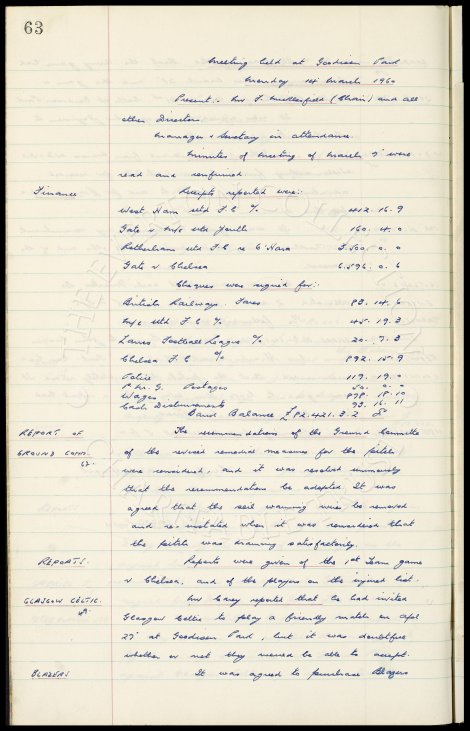 63
Meeting held at Goodison Park
Monday 14 March 1960
Present: Mr F. Micklesfield (Chair) and all
other Directors.
Manager & Secretary in attendance.
Minutes of meeting of March 7 were
read and confirmed.
Finance Receipts reported were:
West Ham Utd F.C. % 412. 16. 9
Gate v M/c Utd Youth 160. 4. 0
Rotherham Utd F.C. re O'Hara 3.500. 0. 0
Gate v Chelsea 6.596. 0. 6
Cheques was signed for:
British Railways. Fares 83. 14. 6
M/c Utd F.C. % 45. 19. 3
Lancs Football League % 20. 7. 3
Chelsea F.C. % 892. 15. 9
Police 119. 19. 0
P.M.G. Postages 50. 0. 0
Wages 878. 18. 10
Cash Disbursements 93. 16. 11
Bank Balance £82.421. 3. 2
REPORT OF The recommendations of the Ground Committee
GROUND COMM. of the revised remedial measures for the pitch
were considered, and it was resolved unanimously
that the recommendations be adopted. It was
agreed that the soil warming wires be removed
and re-instated when it was considered that
the pitch was draining satisfactorily.
REPORTS. Reports were given of the 1st Team game
v Chelsea, and of the players on the injured list.
GLASGOW CELTIC. Mr Carey reported that he had invited
Glasgow Celtic to play a friendly match on Apl
27 at Goodison Park, but it was doubtful
whether or not they would be able to accept.
BLAZERS It was agreed to purchase Blazers